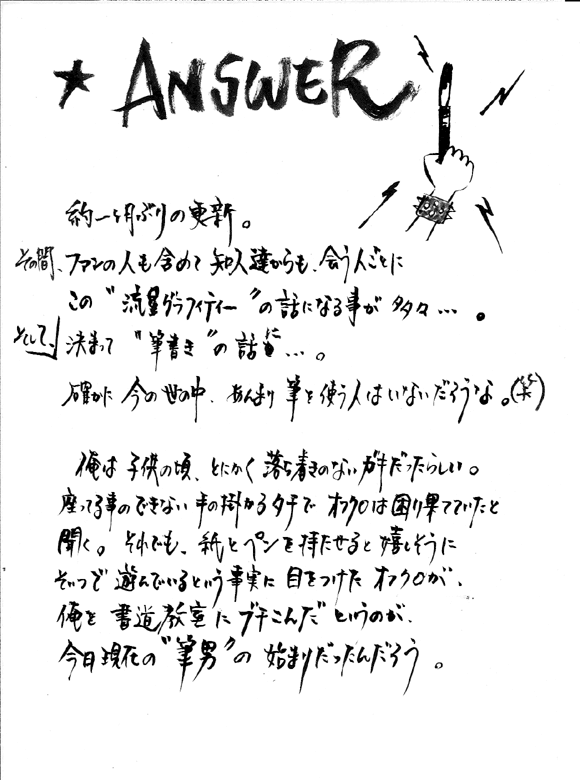 ★ ANSWER
約一ヶ月ぶりの更新。
その間、ファンの人も含めて知人達からも、会う人ごとに
この“流星グラフィティー”の話になる事が多々…。
そして、決まって“筆書き”の話に…。
確かに今の世の中、あんまり筆を使う人はいないだろうな。(笑)
俺は子供の頃、とにかく落ち着きのないガキだったらしい。
座ってる事のできない手の掛かるタチでオフクロは困り果てていたと
聞く。それでも、紙とペンを持たせると嬉しそうに
そいつで遊んでいるという事実に目をつけたオフクロが、
俺を書道教室にブチこんだというのが、
今日現在の“筆男”の始まりだったんだろう。